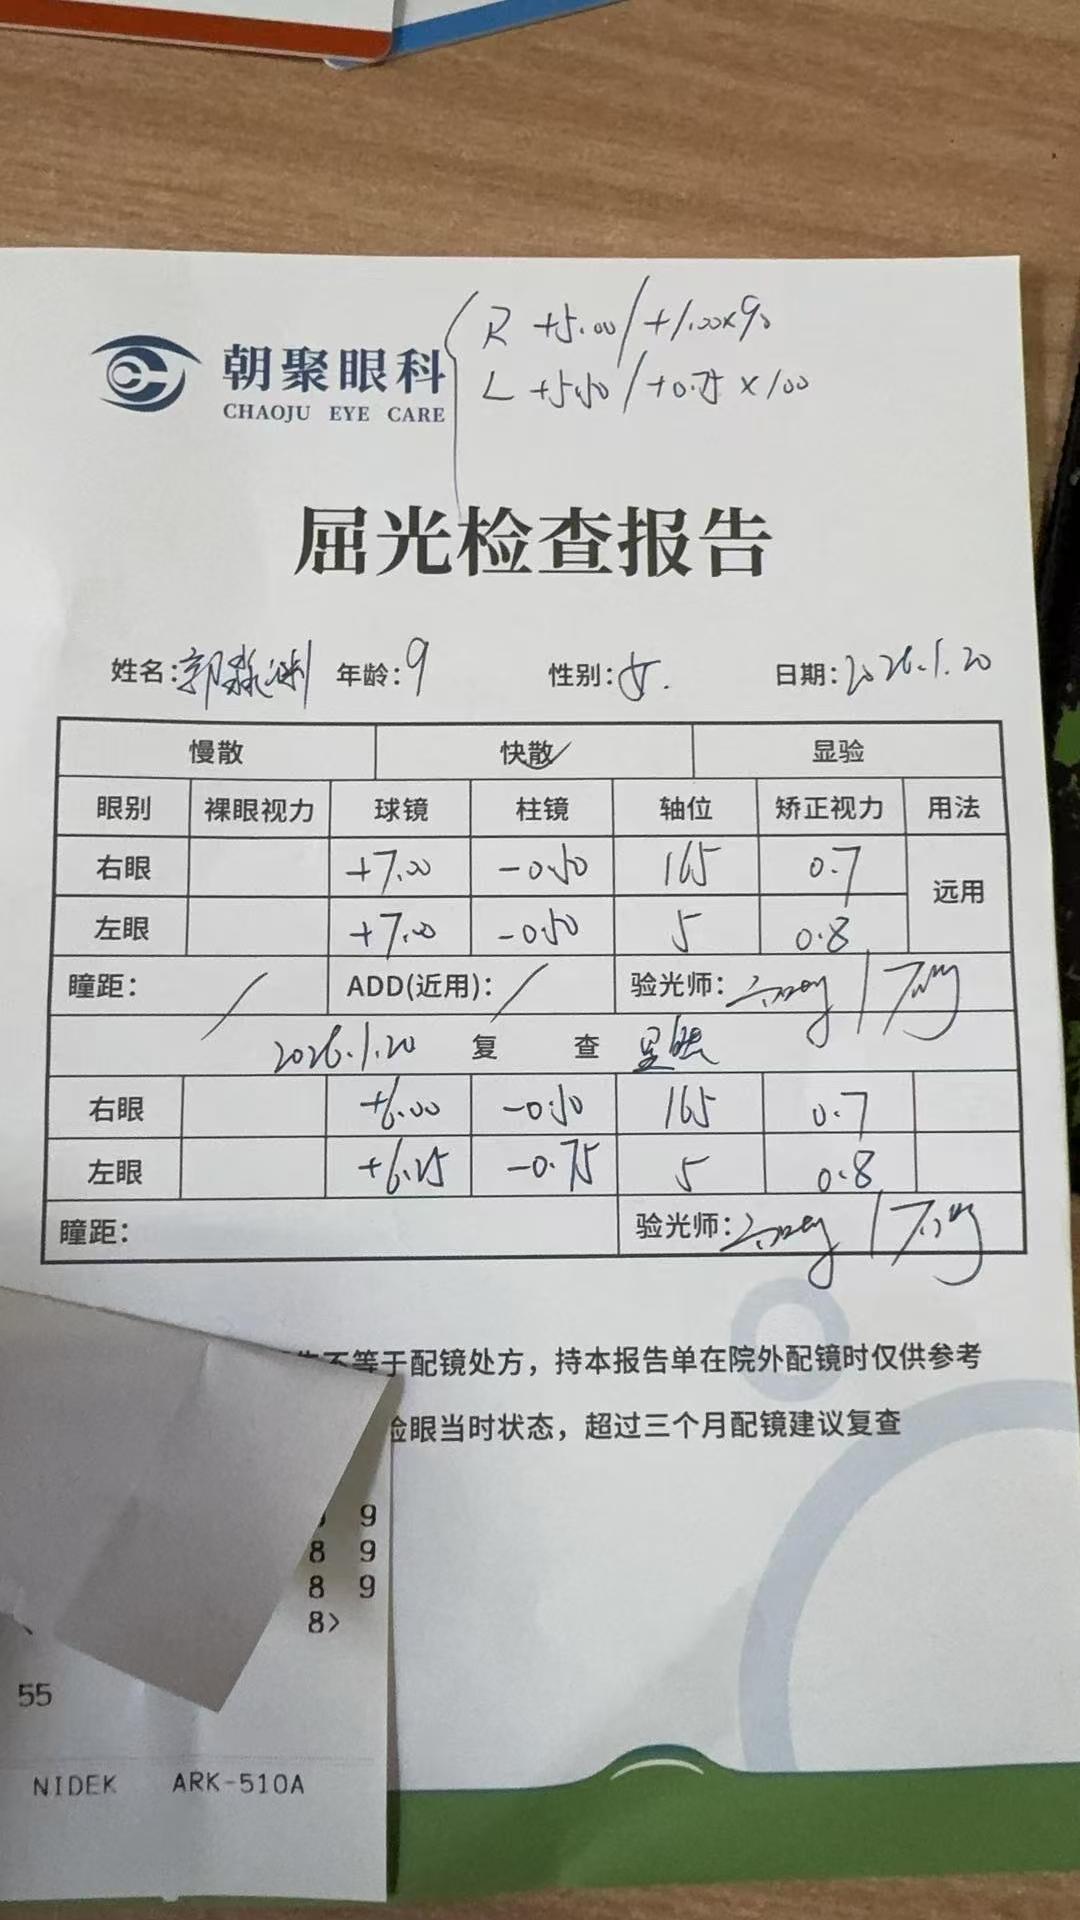 R +5.00/+1.00×90
L +5.50/+0.75×100
朝聚眼科
CHAOJU EYE CARE
屈光检查报告
姓名:郭 年龄:9 性别:女. 日期:2026.1.20
慢散 快散✓ 显验
眼别 裸眼视力 球镜 柱镜 轴位 矫正视力 用法
右眼 +7.00 -0.50 165 0.7 远用
左眼 +7.00 -0.50 5 0.8
瞳距: / ADD(近用): / 验光师:
2026.1.20 复 查 显验
右眼 +6.00 -0.50 165 0.7
左眼 +6.25 -0.75 5 0.8
瞳距: 验光师:
不等于配镜处方，持本报告单在院外配镜时仅供参考
验眼当时状态，超过三个月配镜建议复查
9
8 9
8 9
8>
55
NIDEK ARK-510A